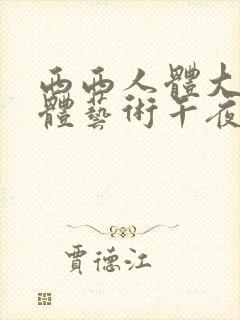 西西人體大
體藝術午夜
賈德江